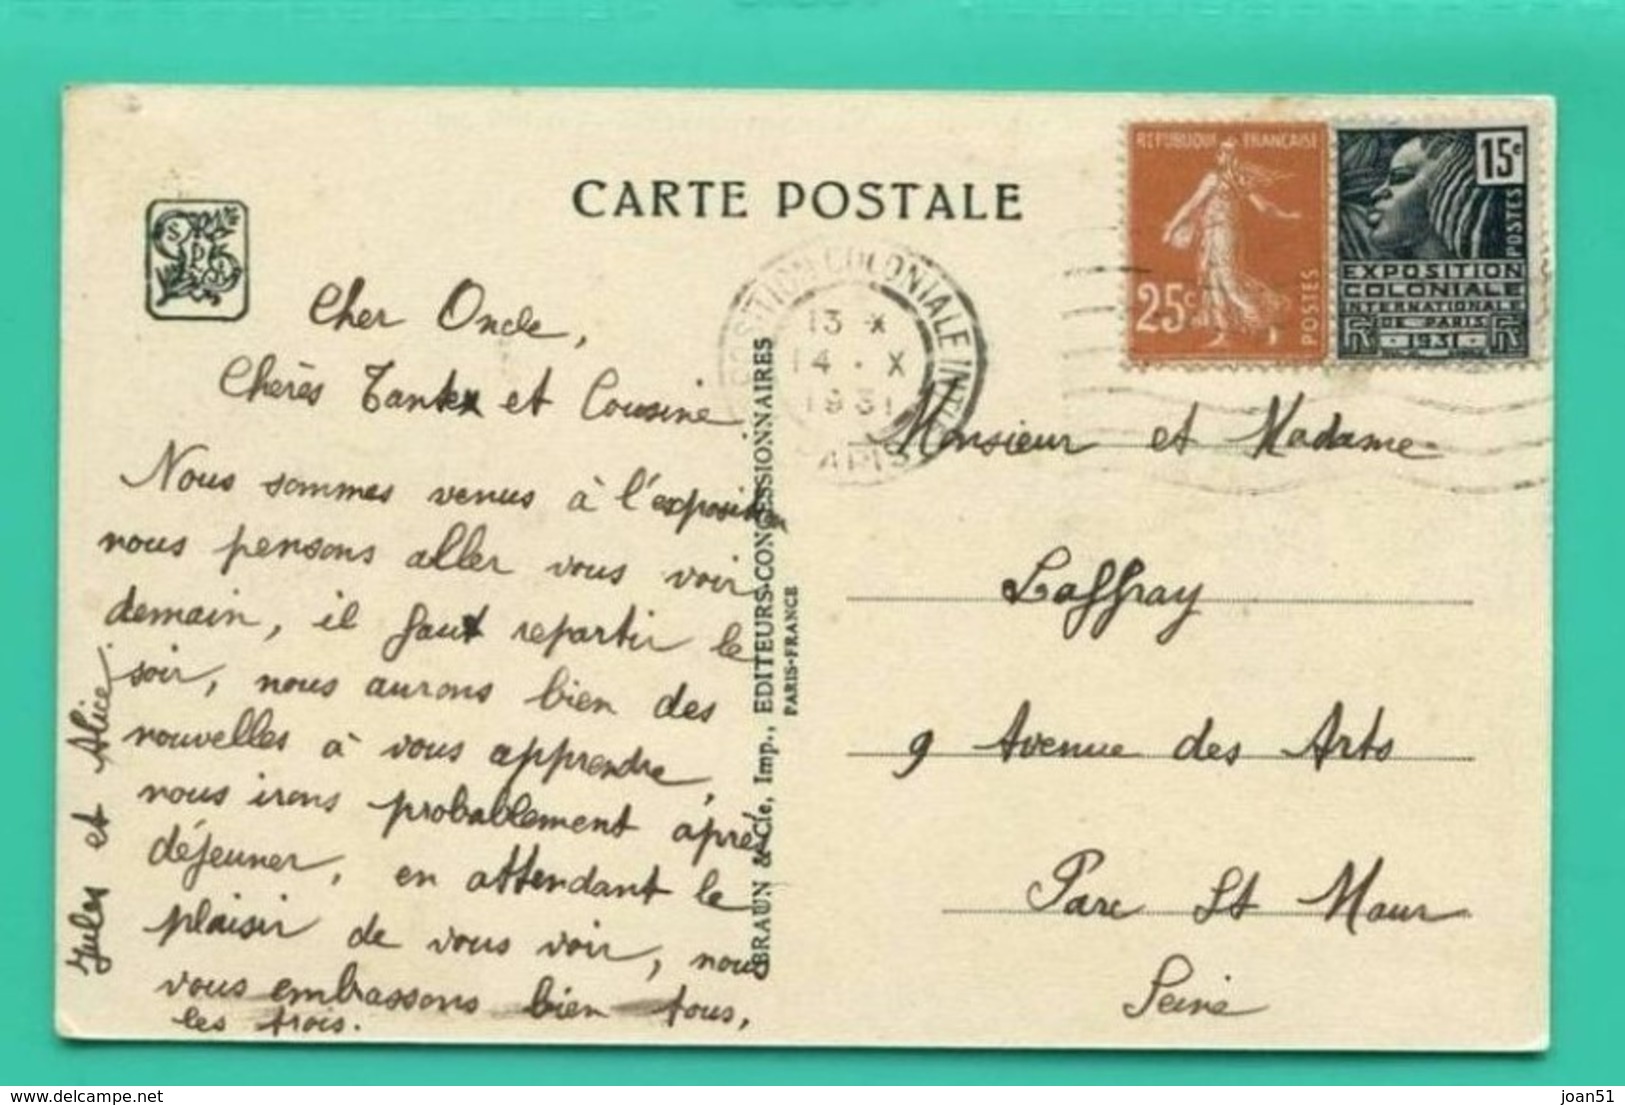 CARTE POSTALE
REPUBLIQUE FRANÇAISE
25c
POSTES
15c
POSTES
EXPOSITION
COLONIALE
INTERNATIONALE
DE PARIS
1931
COLONIALE INT
13 X
14 . X
1931
Cher Oncle,
Chères Tante et Cousine
Nous sommes venus à l'exposition
nous pensons aller vous voir
demain, il faut repartir le
soir, nous aurons bien des
nouvelles à vous apprendre,
nous irons probablement àprès
déjeuner, en attendant le
plaisir de vous voir, nous
vous embrassons bien tous,
les trois.
Jules et Alice.
BRAUN & Cie, Imp., EDITEURS-CONCESSIONNAIRES
PARIS-FRANCE
Monsieur et Madame
Laffray
9 Avenue des Arts
Parc St Maur
Seine
www.delcampe.net
joan51